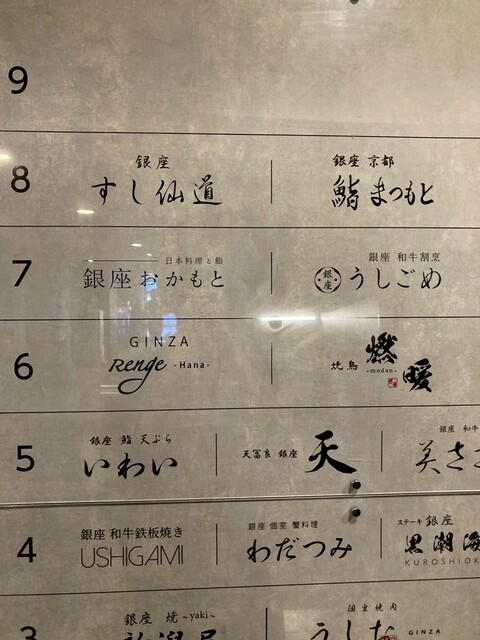 9
8
銀座
すし仙道
銀座 京都
鮨 まつもと
7
日本料理と鮨
銀座 おかもと
銀座 和牛割烹
銀座 うしごめ
6
GINZA
Renge -Hana-
焼鳥 燃暖
-modan-
5
銀座 鮨 天ぷら
いわい
天冨良 銀座 天
銀座 和牛
美さき
4
銀座 和牛鉄板焼き
USHIGAMI
銀座 個室 蟹料理
わだつみ
ステーキ 銀座
黒潮海
KUROSHIOK
3
銀座 焼 ~yaki~
国重焼肉
うした
GINZA